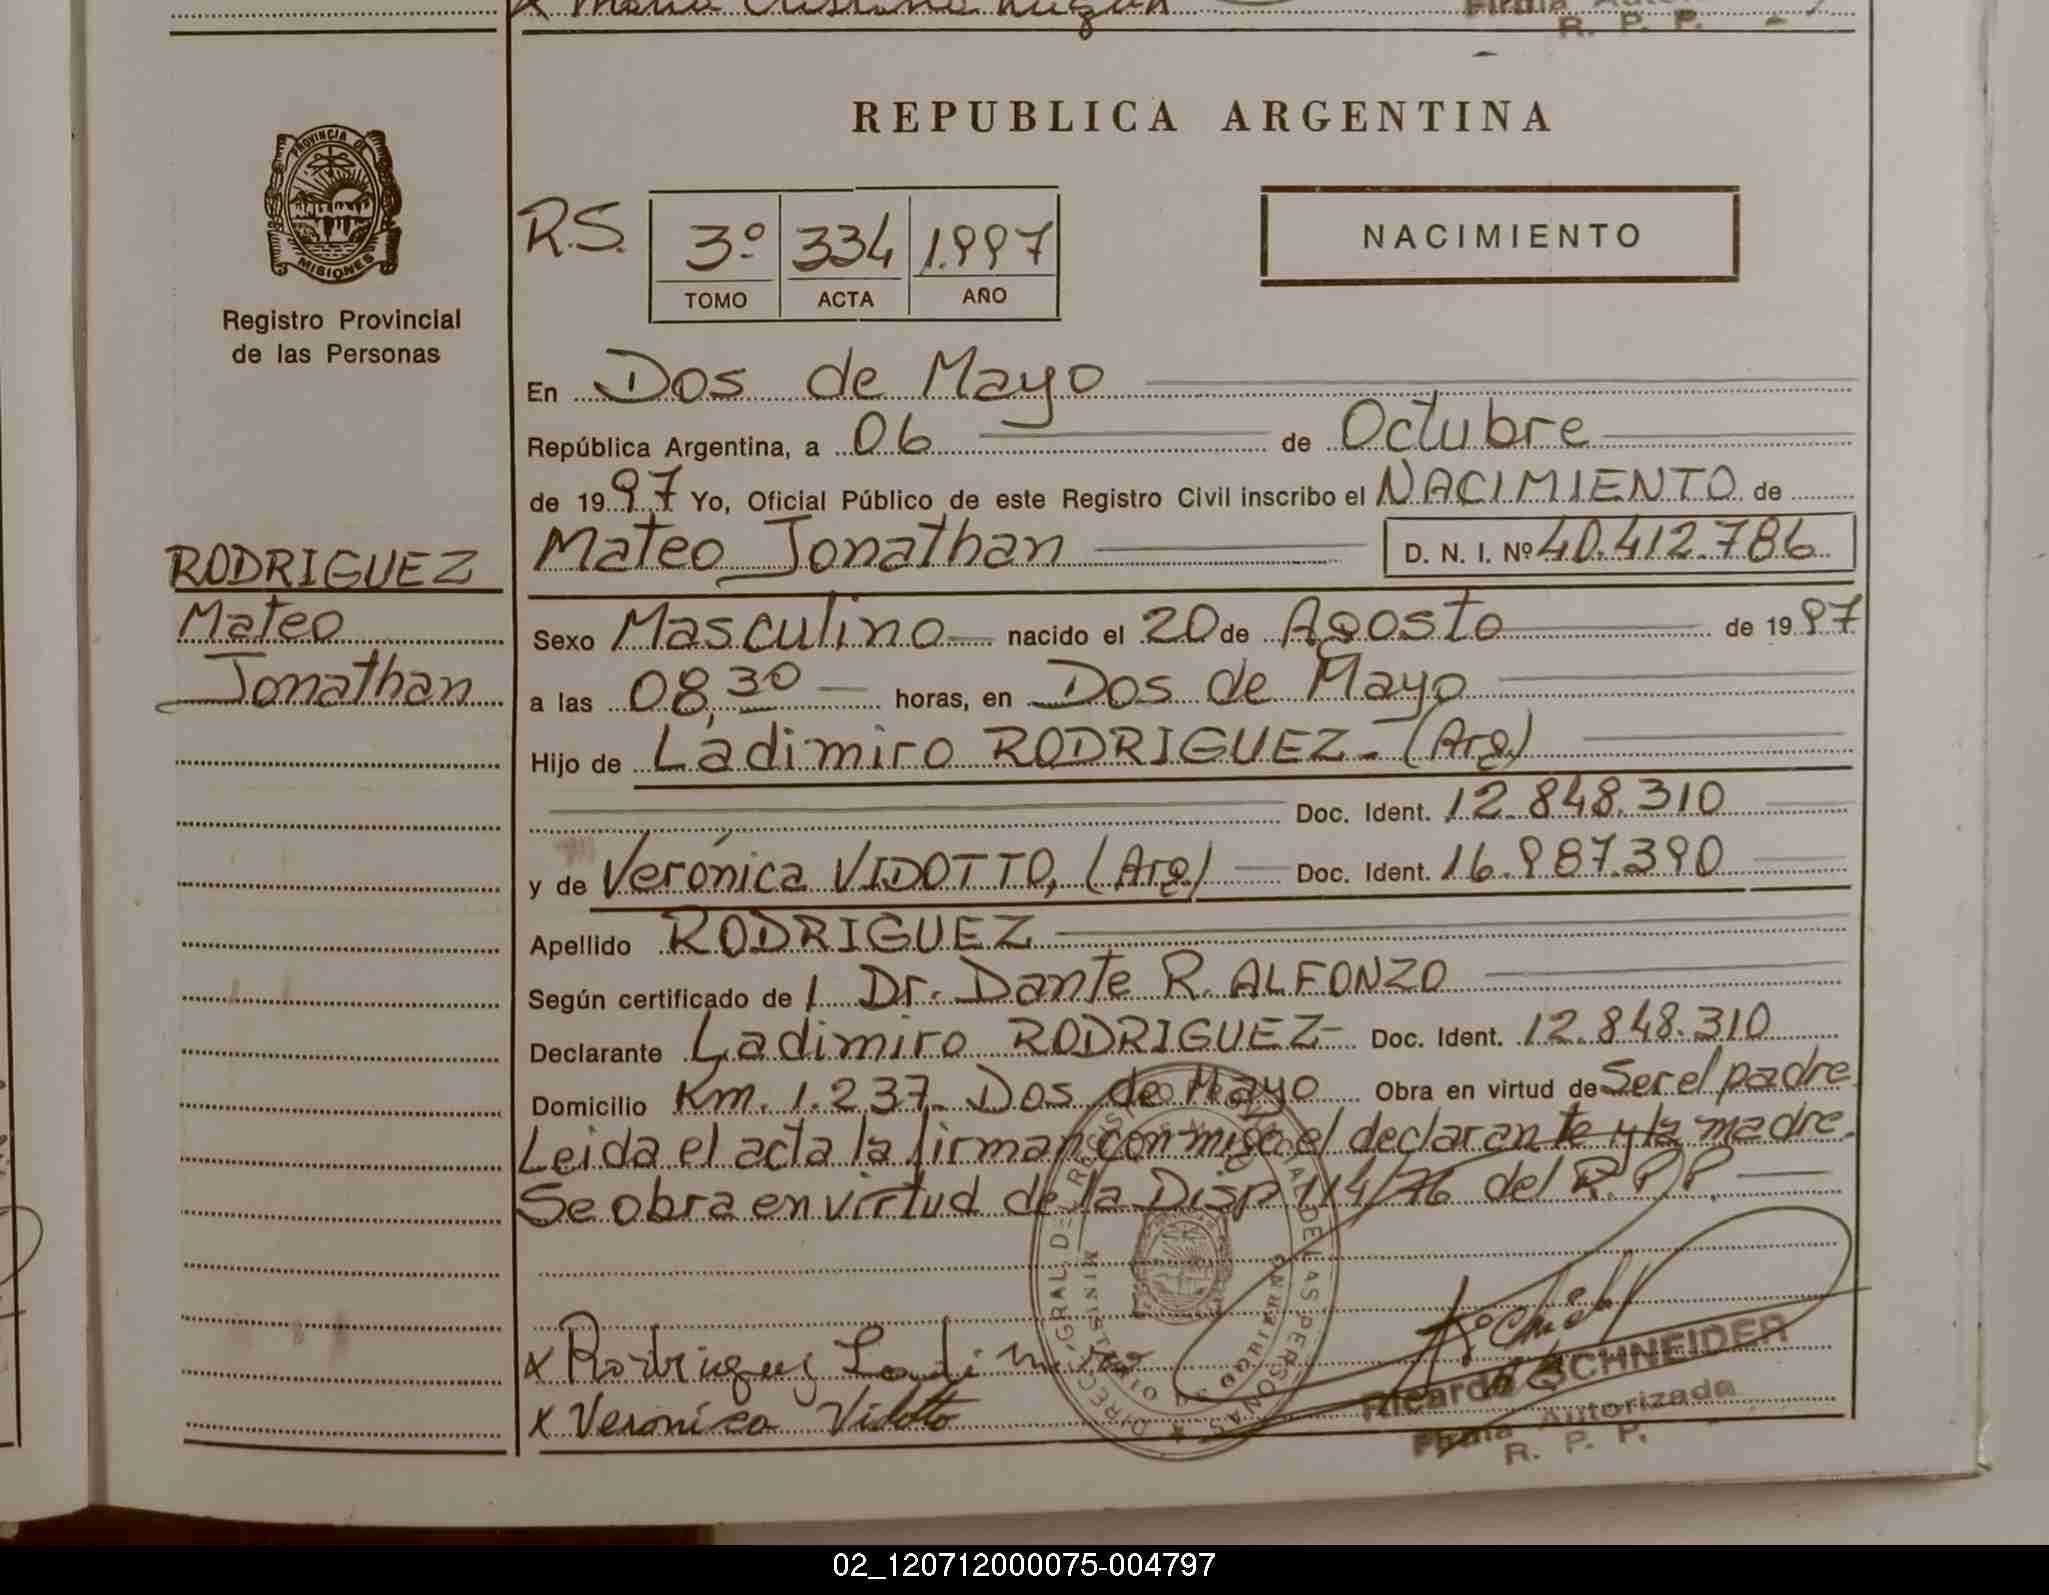 REPUBLICA ARGENTINA
PROVINCIA DE
MISIONES
Registro Provincial
de las Personas
R.S. 3º 334 1.997
TOMO ACTA AÑO
NACIMIENTO
En Dos de Mayo
República Argentina, a 06 de Octubre
de 1997 Yo, Oficial Público de este Registro Civil inscribo el NACIMIENTO de
RODRIGUEZ
Mateo
Jonathan
Mateo Jonathan D. N. I. Nº 40.412.786
Sexo Masculino nacido el 20 de Agosto de 1997
a las 08,30 horas, en Dos de Mayo
Hijo de Ladimiro RODRIGUEZ - (Arg)
Doc. Ident. 12.848.310
y de Verónica VIDOTTO, (Arg) Doc. Ident. 16.987.390
Apellido RODRIGUEZ
Según certificado de l Dr. Dante R. ALFONZO
Declarante Ladimiro RODRIGUEZ - Doc. Ident. 12.848.310
Domicilio Km. 1.237 - Dos de Mayo Obra en virtud de Ser el padre
Leida el acta la firman conmigo el declarante y la madre.
Se obra en virtud de la Disp 114/76 del R.P.P.
x Rodriguez Ladimiro
x Veronica Vidotto
Ricardo SCHNEIDER
Firma Autorizada
R. P. P.
02_120712000075-004797